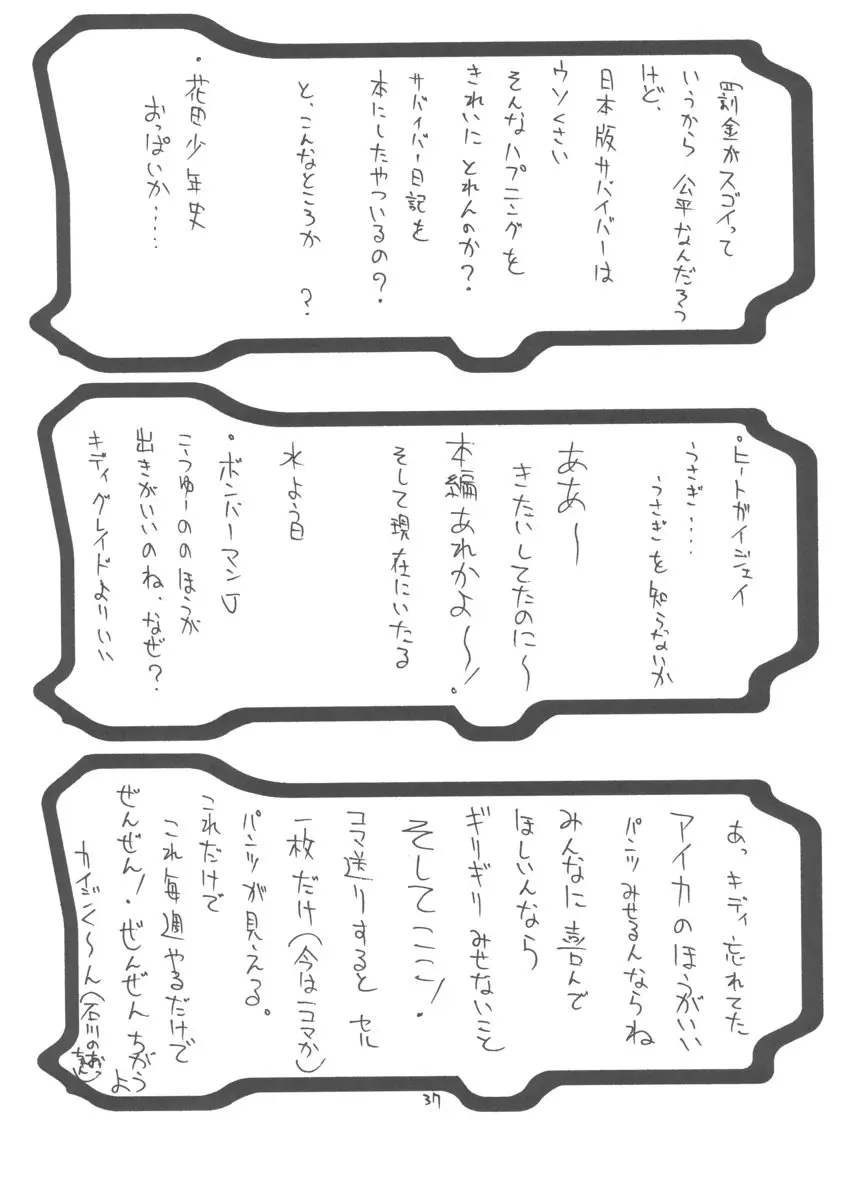 罰金がスゴイって
いうから 公平なんだろう
けど、
日本版サバイバーは
ウソくさい
そんなハプニングを
きれいに とれんのか?
サバイバー日記を
本にしたやついるの?
と、こんなところか ?
・花田少年史
おっぱいか……
・ヒートガイジェイ
うさぎ…
うさぎを知らないか
ああ〜
きたいしてたのに〜
本編あれかよ〜!
そして現在にいたる
水よう日
・ボンバーマンJ
こうゆーののほうが
出きがいいのね、なぜ?
キディグレイドよりいい
あっ キディ忘れてた
アイカのほうがいい
パンツみせるんならね
みんなに喜んで
ほしいんなら
ギリギリみせないこと
そしてここ!
コマ送りすると セル
一枚だけ(今は一コマか)
パンツが見える。
これだけで
これ毎週やるだけで
ぜんぜん!ぜんぜん ちがうよ
カイジンく〜ん(石川のおっちゃん)
37